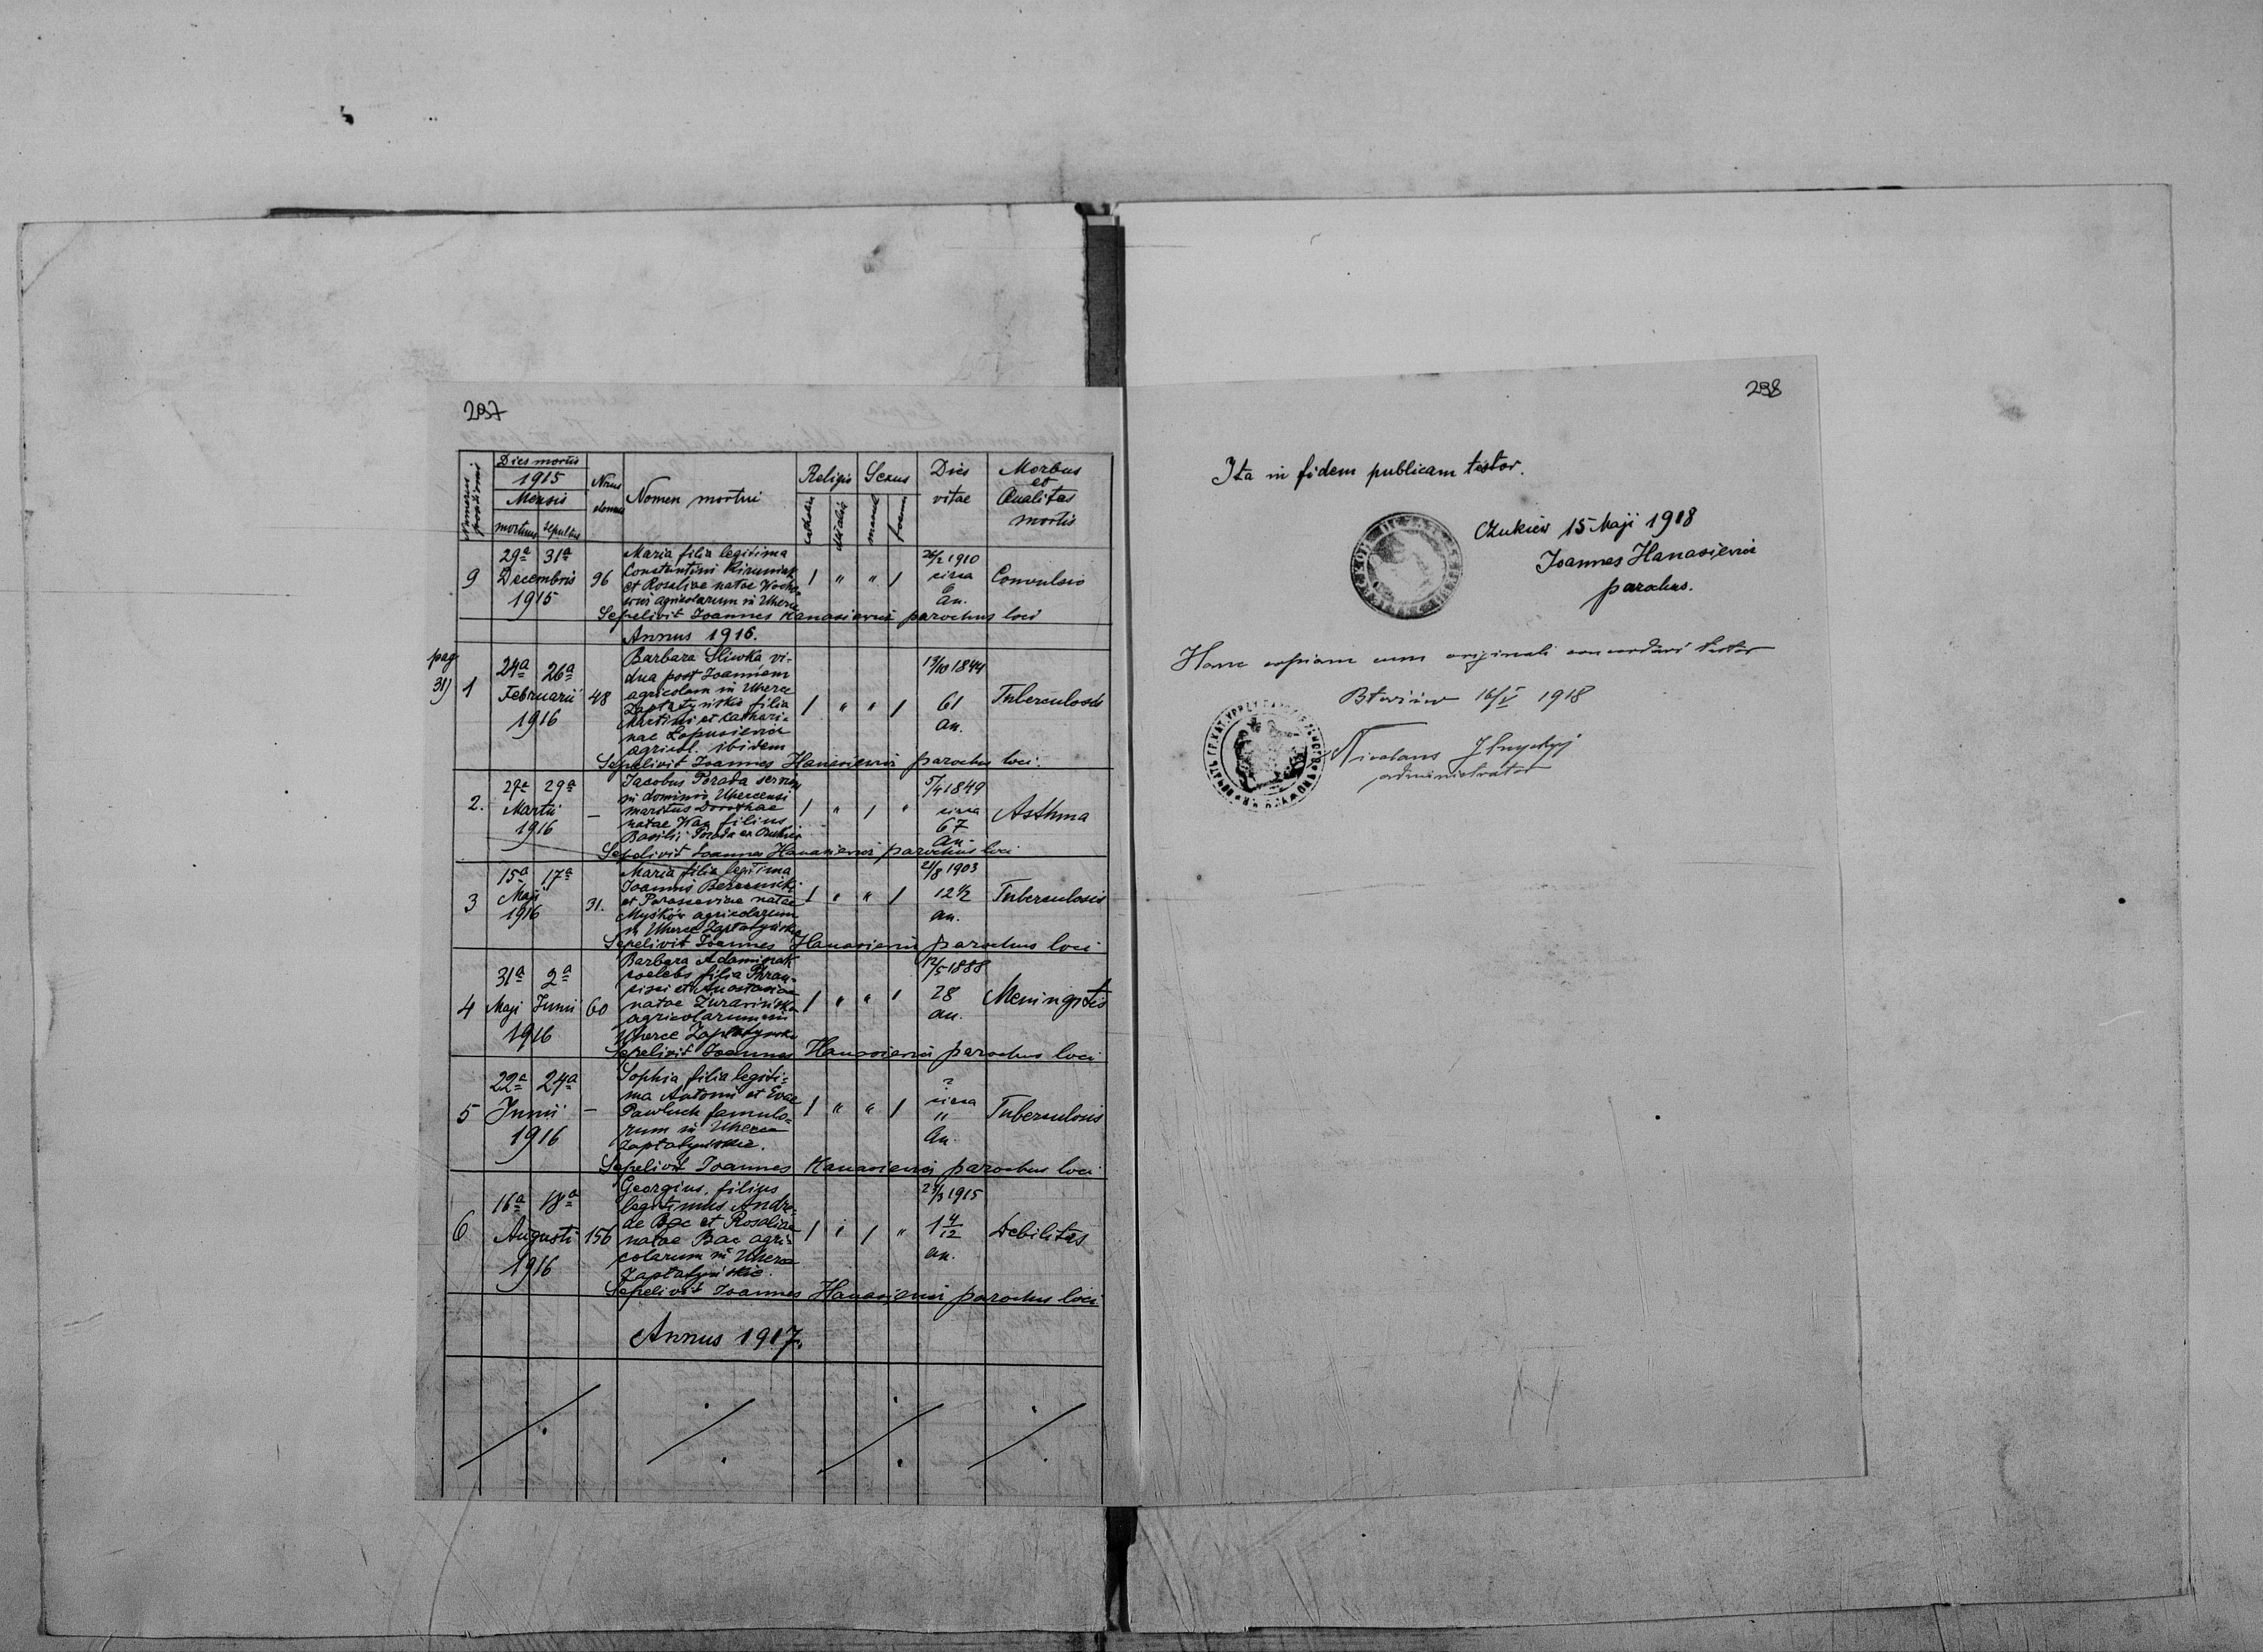 297
Numerus positionis
Dies mortis
1915
Mensis
mortuus sepultus
Nrus domus
Nomen mortui
Religio
catholica
Sexus
Dies
vitae
Morbus
et
Qualitas
mortis
29a 31a
9 Decembris 96
1915
Maria filia legitima
Constantini
et Rosaliae natae
agricolarum in Uherce
1 " " 1
26/2 1910
circa
6
an.
Convulsio
Sepelivit Joannes Hanasiewicz parochus loci
Annus 1916.
pag
31)
1
24a 26a
Februarii 48
1916
Barbara Śliwka, vi-
dua post Joannem
agricolam in Uherce
Zapłatyńskie filia
Martini et Kathari-
nae Łopusiewicz
agricol. ibidem
1 " " 1
13/10 1844
61
an.
Tuberculosis
Sepelivit Joannes Hanasiewicz parochus loci.
2.
27a 29a
Martii —
1916
Jacobus Porada servus
in dominio Uhercensi
maritus Dorothae
natae Wax filius
Basilii Porada ex
1 " 1 "
5/4 1849
circa
67
an.
Asthma
Sepelivit Joannes Hanasiewicz parochus loci
3
15a 17a
Maji 31.
1916
Maria filia legitima
Joannis Bereznicki
et Parasceviae natae
Myśków agricolarum
in Uherce Zapłatyńskie
1 " " 1
21/8 1903
12 1/2
an.
Tuberculosis
Sepelivit Joannes Hanasiewicz parochus loci
4
31a 2a
Maji Junii 60
1916
Barbara Adamiak
coelebs filia Phran-
cisci et Anastasiae
natae Zurawińska
agricolarum in
Uherce Zapłatyńskie
1 " " 1
12/5 1888
28
an.
Meningitis
Sepelivit Joannes Hanasiewicz parochus loci
5
22a 24a
Junii —
1916
Sophia filia legiti-
ma Antonii et Evae
Pawluch famulo-
rum in Uherce
Zapłatyńskie.
1 " " 1
?
circa
"
an.
Tuberculosis
Sepelivit Joannes Hanasiewicz parochus loci
6
16a 18a
Augusti 156
1916
Georgius, filius
legitimus Andre-
ae Bac et Rosaliae
natae Bac agri-
colarum in Uherce
Zapłatyńskie.
1 " 1 "
1 4/12
an.
Debilitas
Sepelivit Joannes Hanasiewicz parochus loci
Annus 1917.
298
Ita in fidem publicam testor.
Czukiew 15 Maji 1918
Joannes Hanasiewicz
parochus.
Hanc copiam cum originali concordari testor
16/V 1918
Nicolaus
administrator